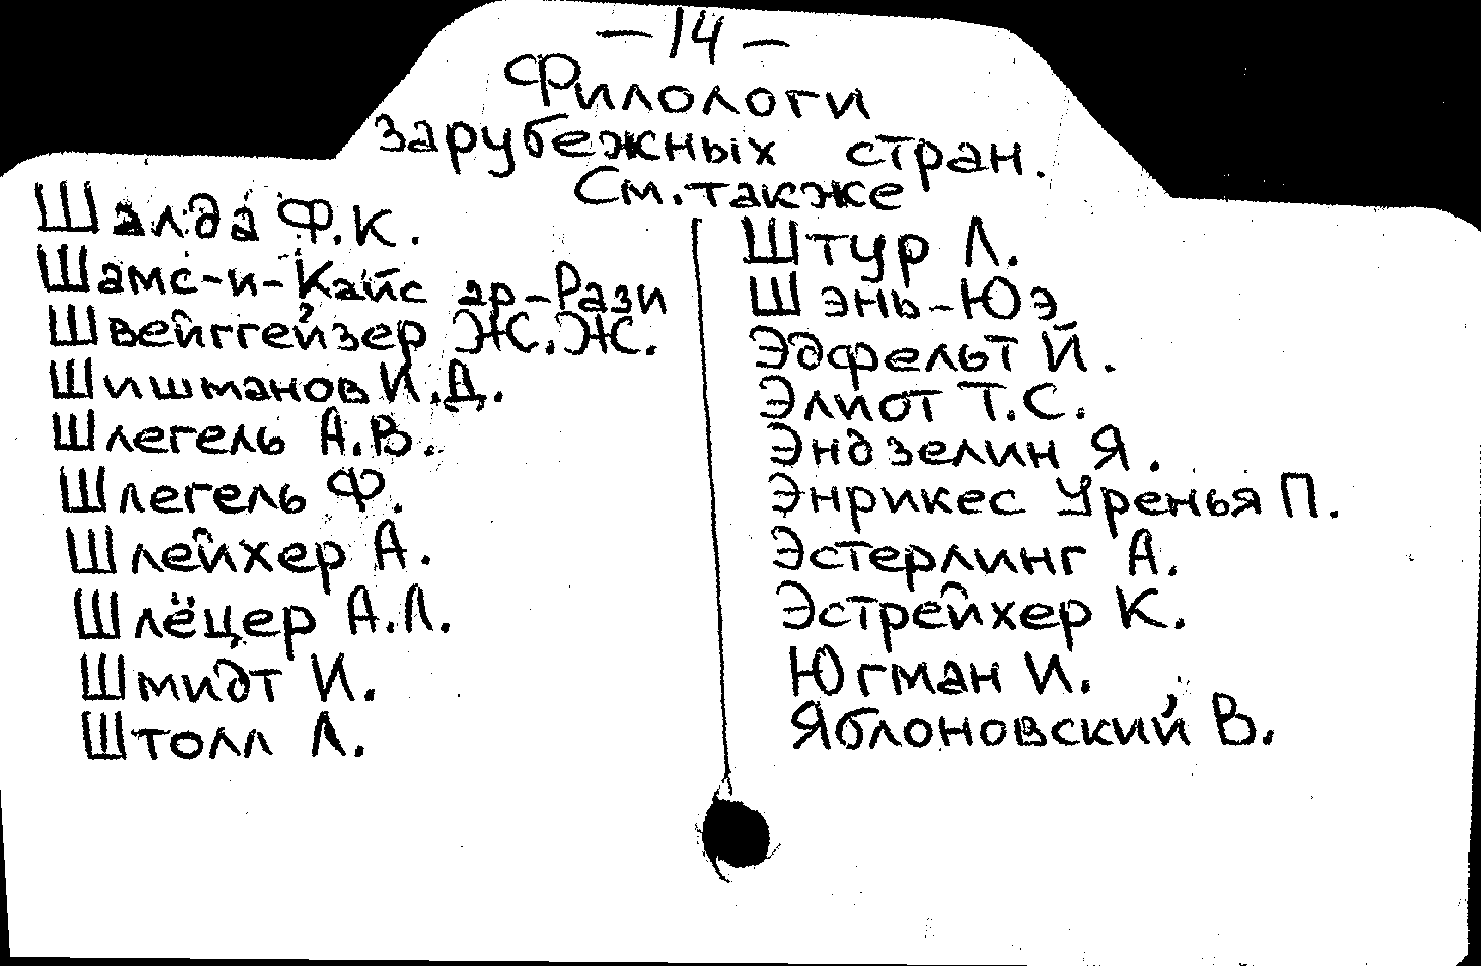 — 14 —
Филологи
зарубежных стран.
См. также
Шалда Ф.К.
Шамс-и-Кайс ар-Рази
Швейггейзер Ж.Ж.
Шишманов И.Д.
Шлегель А.В.
Шлегель Ф.
Шлейхер А.
Шлёцер А.Л.
Шмидт И.
Штолл Л.
Штур Л.
Шэнь-Юэ
Эдфельт Й.
Элиот Т.С.
Эндзелин Я.
Энрикес Уренья П.
Эстерлинг А.
Эстрейхер К.
Югман И.
Яблоновский В.